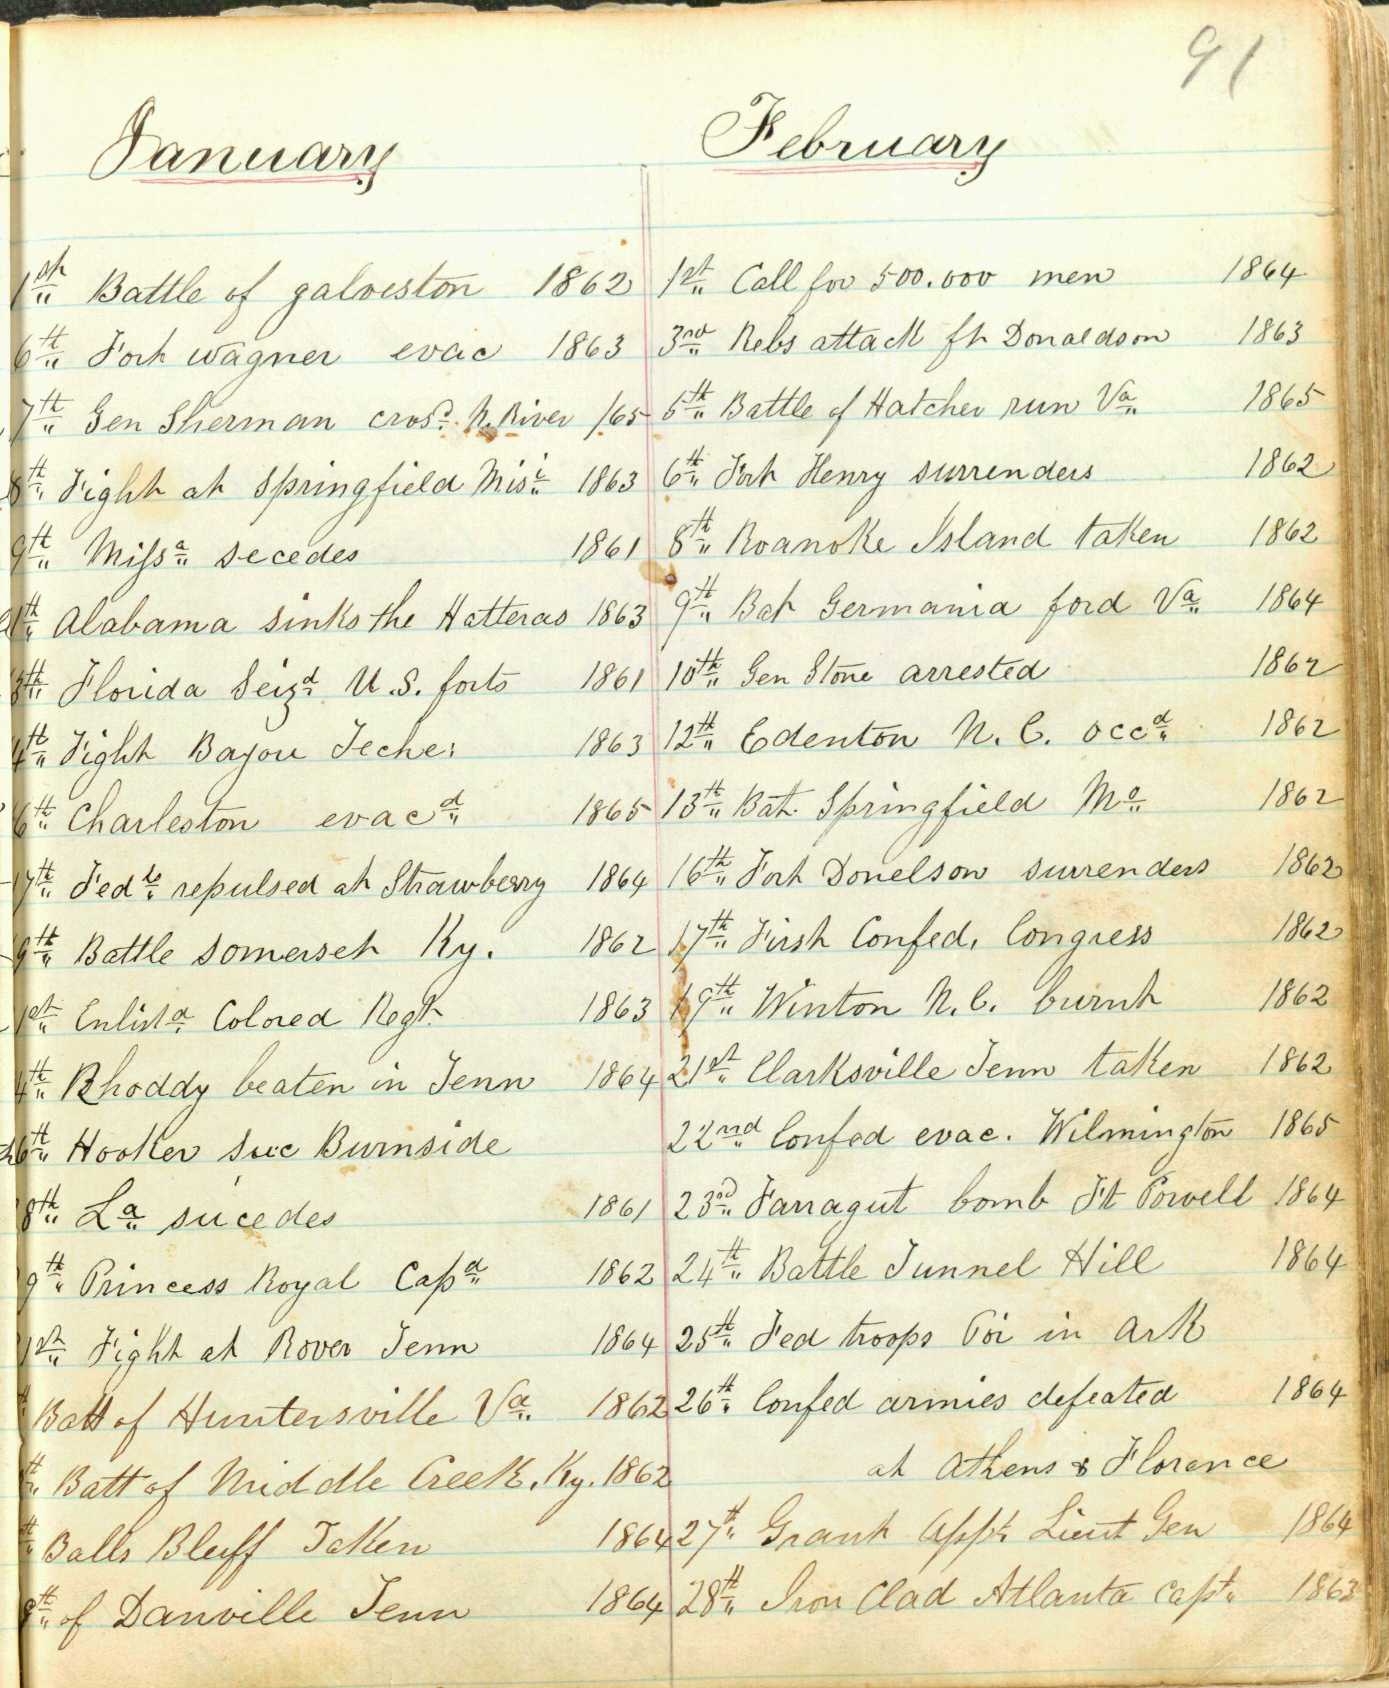 91
January
1st Battle of galveston 1862
6th Fort Wagner evac 1863
7th Gen Sherman crosd N. River /65
8th Fight at Springfield Misi 1863
9th Missa secedes 1861
1th Alabama sinks the Hatteras 1863
8th Florida Seizd U.S. forts 1861
4th Fight Bayou Teche. 1863
6th Charleston evacd 1865
7th Feds repulsed at Strawberry 1864
9th Battle Somerset Ky. 1862
1st Enlistd Colored Regt. 1863
4th Rhoddy beaten in Tenn 1864
26th Hooker suc Burnside
8th La sucedes 1861
9th Princess Royal Capd 1862
1st Fight at Rover Tenn 1864
Batt of Huntersville Va 1862
th Batt of Middle Creek. Ky. 1862
th Balls Bluff Taken 1864
8th of Danville Tenn 1864
February
1st Call for 500.000 men 1864
3rd Rebs attack ft Donaldson 1863
5th Battle of Hatcher run Va 1865
6th Fort Henry surrenders 1862
8th Roanoke Island taken 1862
9th Bat Germania ford Va 1864
10th Gen Stone arrested 1862
12th Edenton N. C. occd 1862
13th Bat. Springfield Mo 1862
16th Fort Donelson surrenders 1862
17th First Confed. Congress 1862
19th Winton N. C. burnt 1862
21st Clarksville Tenn taken 1862
22nd Confed evac. Wilmington 1865
23rd Farragut bomb Ft Powell 1864
24th Battle Tunnel Hill 1864
25th Fed troops Poi in Ark
26th Confed armies defeated 1864
at Athens & Florence
27th Grant appt Lieut Gen 1864
28th Iron Clad Atlanta capt 1863